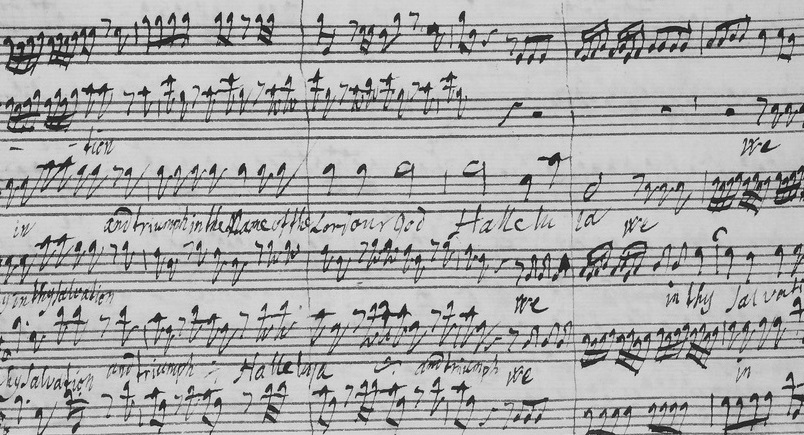 - - tion we
in and triumph in the Name of the Lord our God Hallelu ia we
in thy salvation we in thy Salvati
thy Salvation and triumph Halleluja and triumph we in